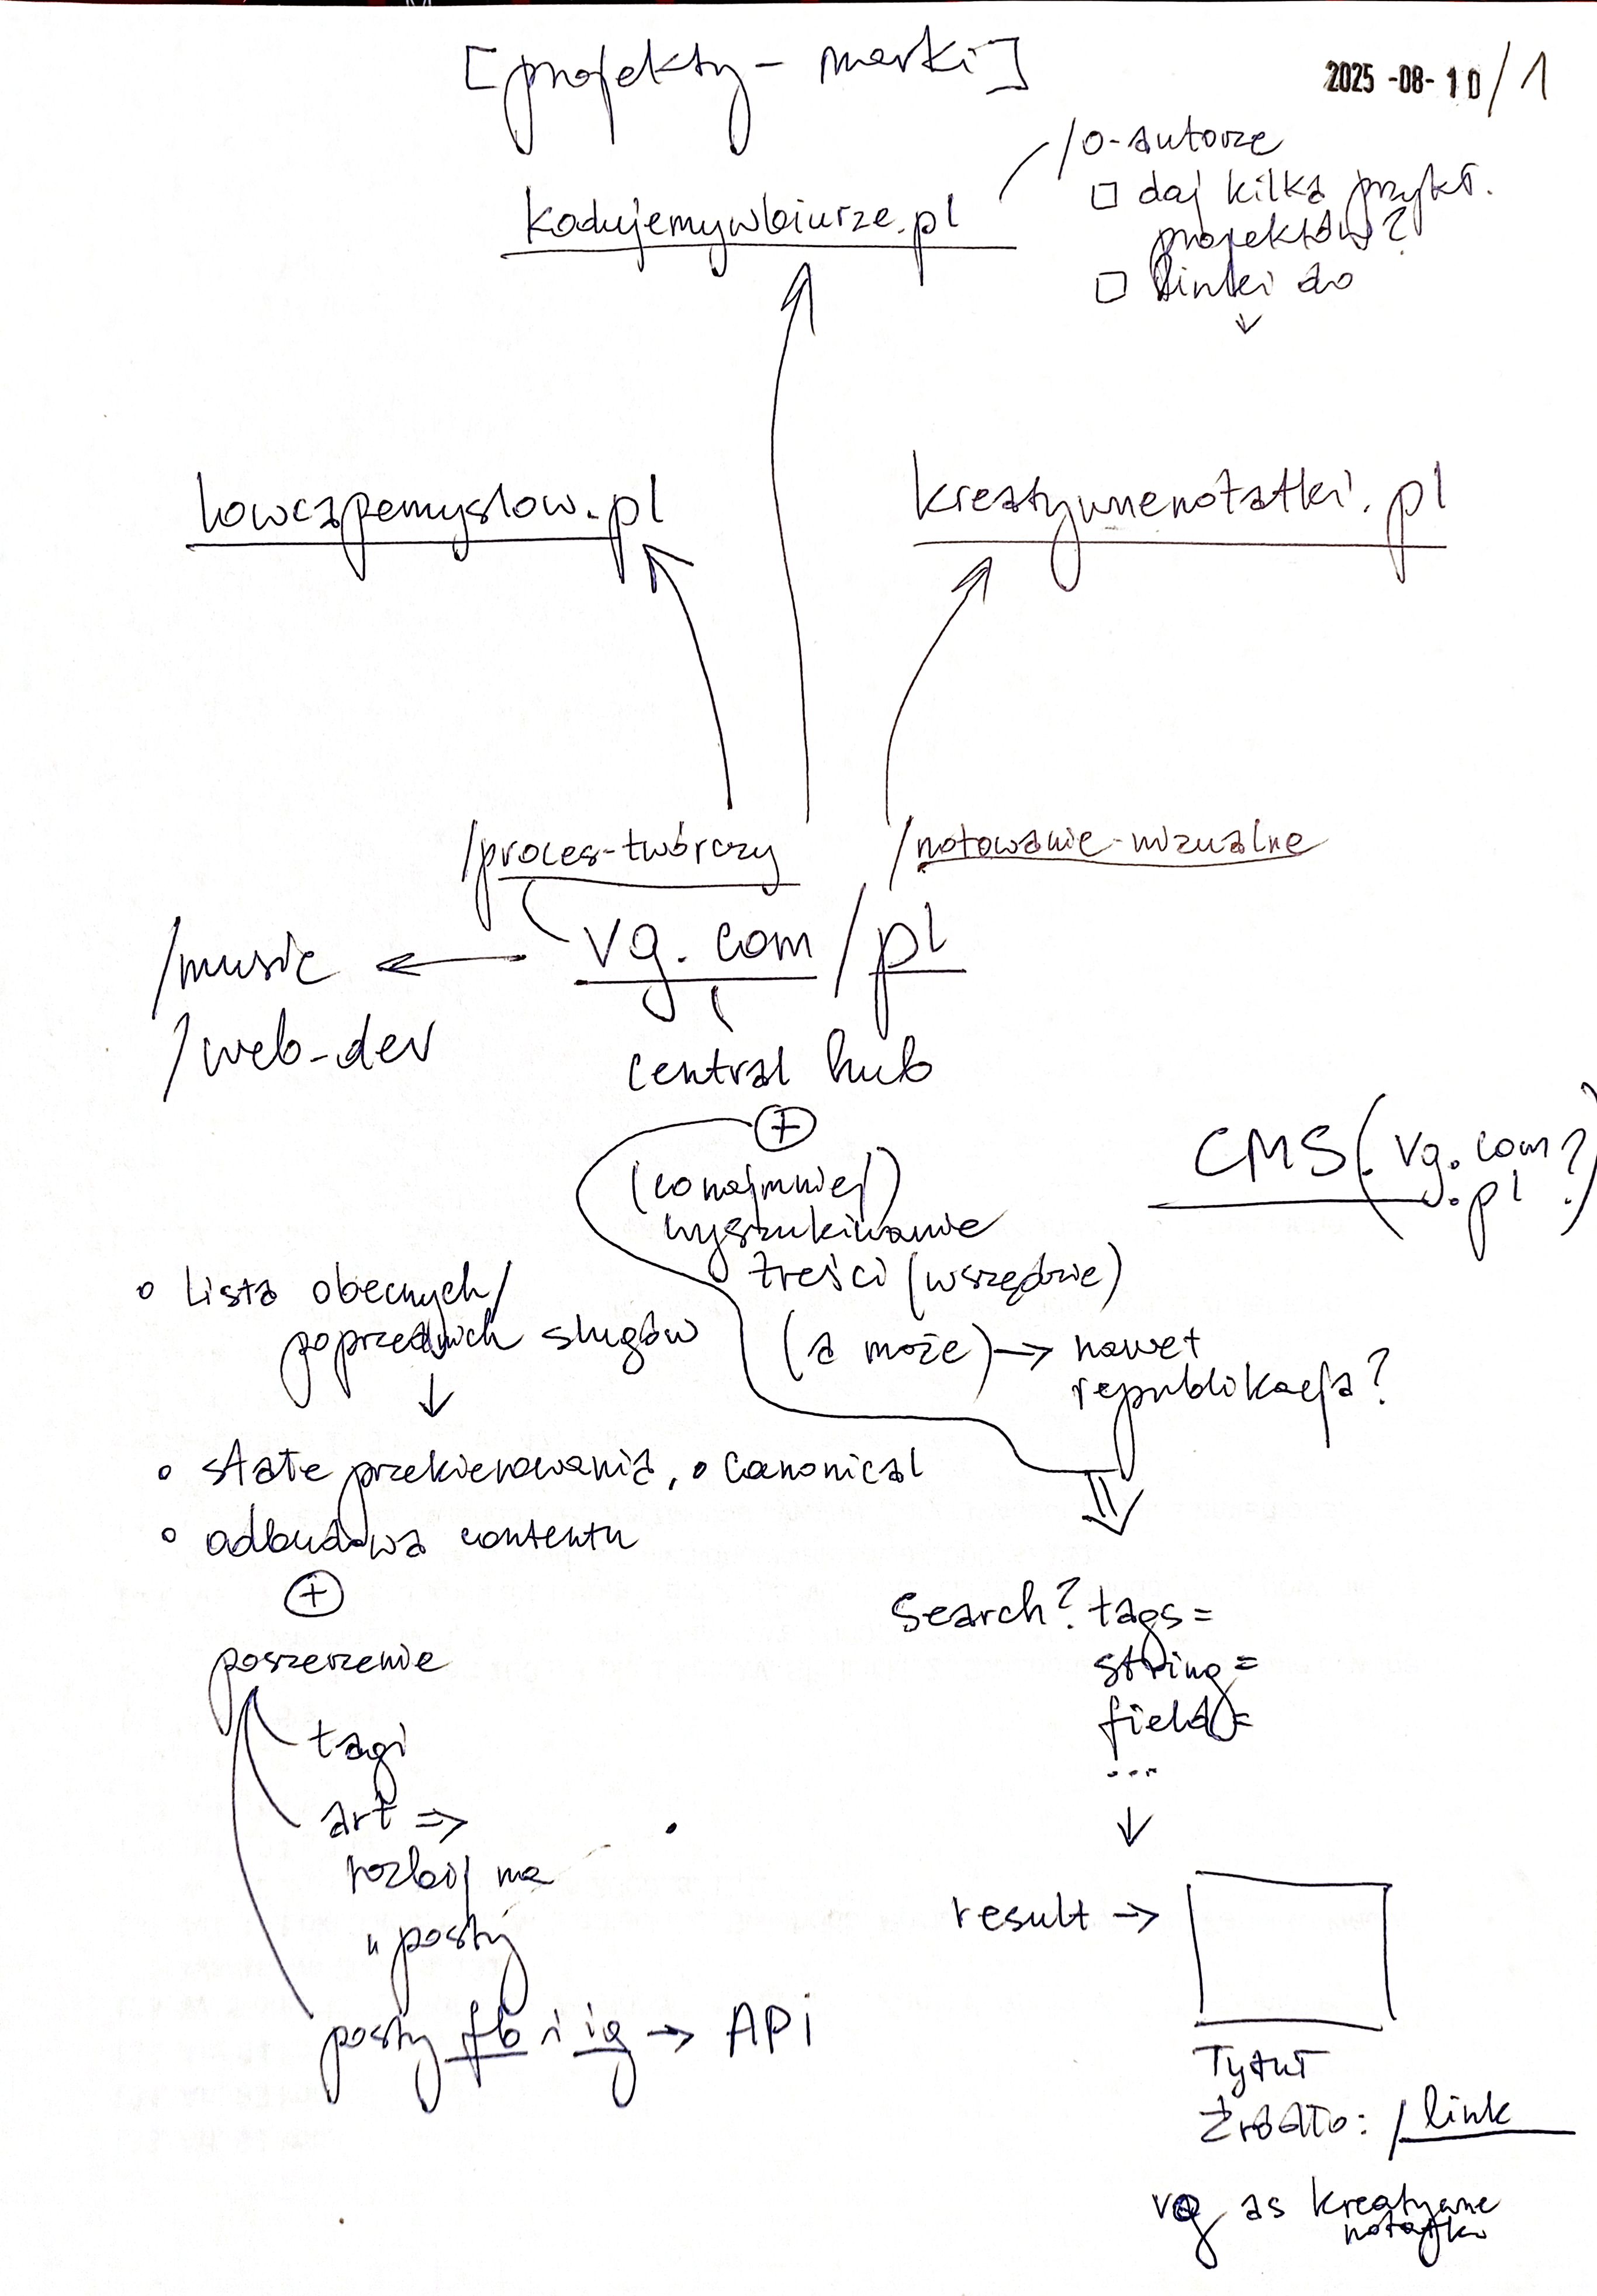 [projekty - marki]
2025-08-10/1
/o-autorze
□ daj kilka przykł.
projektów?
□ linki do
↓
kodujemywbiurze.pl
lowcapomyslow.pl
kreatywnenotatki.pl
/proces-twórczy
/notowanie-wizualne
vg.com/pl
/music ←
/web-dev
central hub
+
(conajmniej)
wyszukiwanie
treści (wszędzie)
(a może) → nawet
republikacja?
CMS (vg.com?
.pl?)
○ Lista obecnych/
poprzednich slugów
↓
○ stałe przekierowania, ○ canonical
○ odbudowa contentu
+
poszerzenie
tagi
art ⇒
rozbij na
posty
posty fb i ig → API
⇓
search? tags=
string=
field=
...
↓
result →
Tytuł
Źródło: /link
vg as kreatywne
notatki